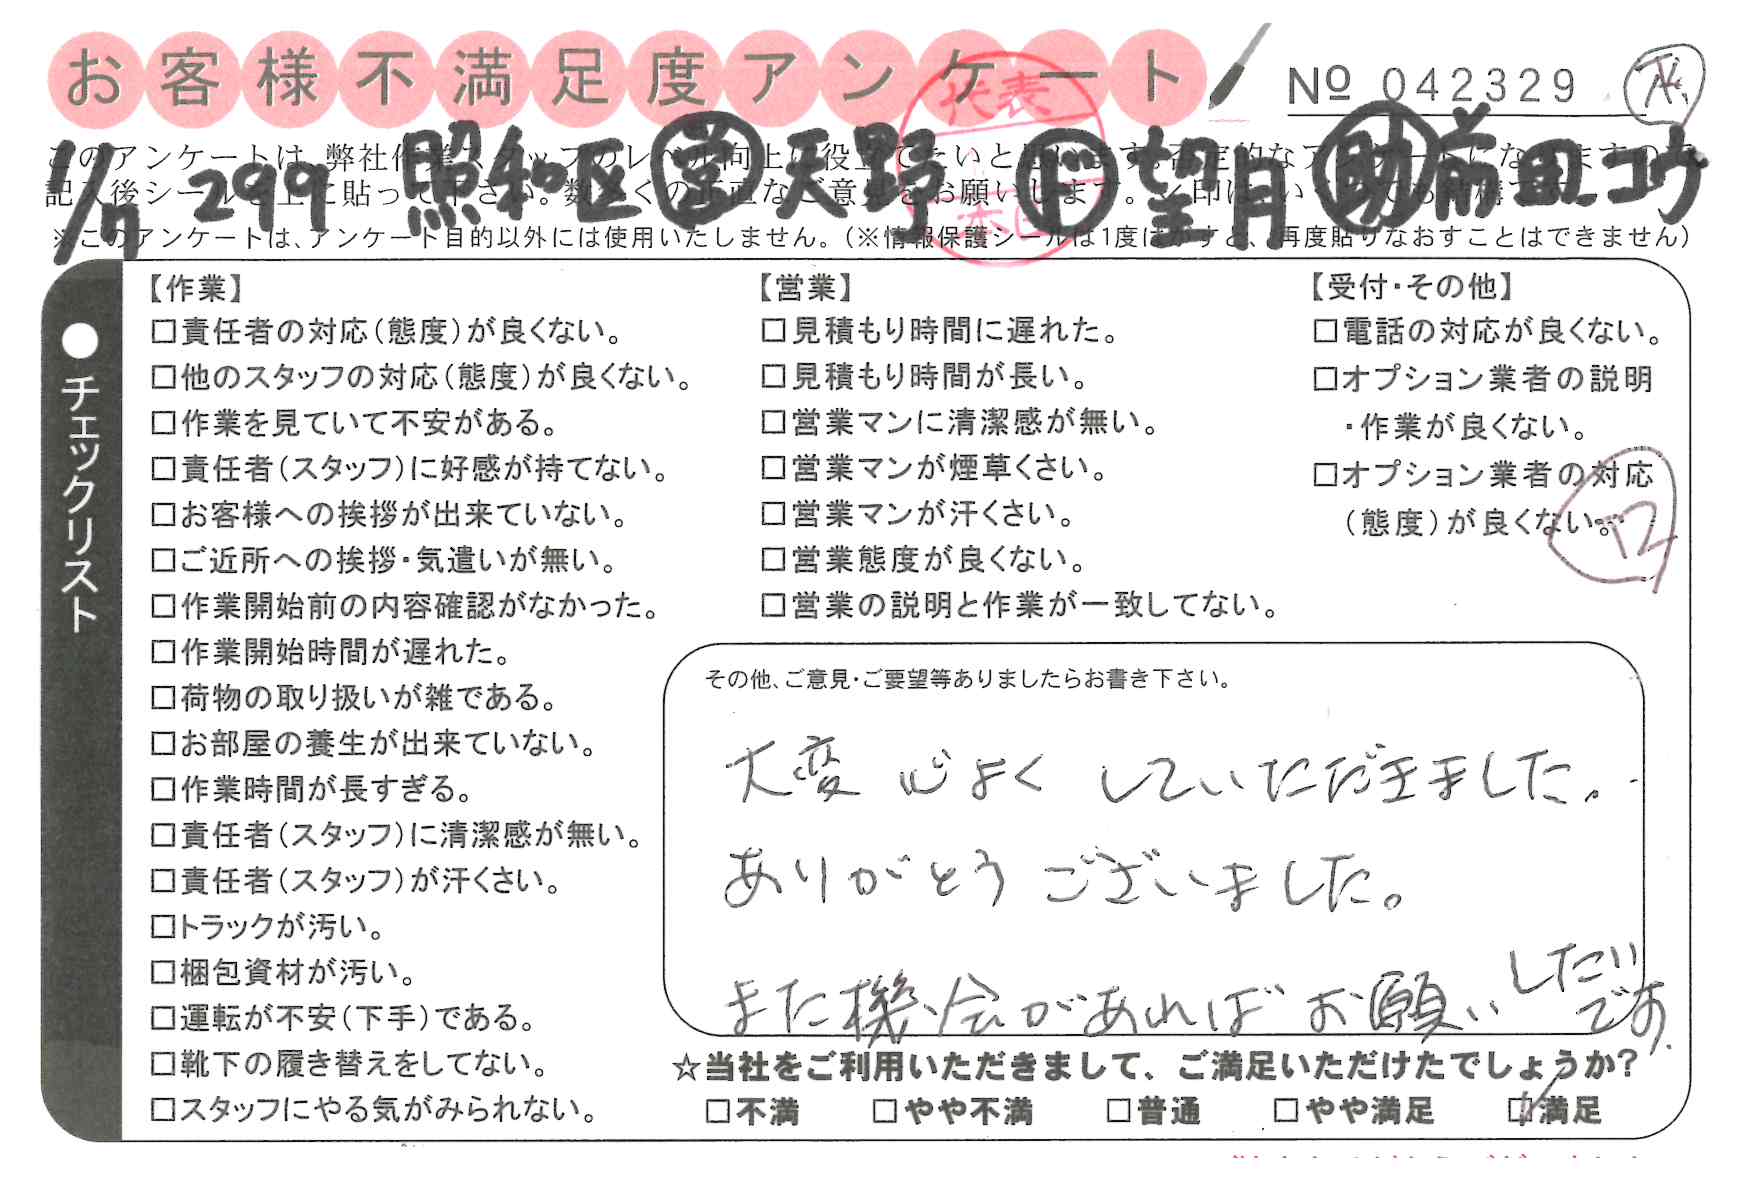 お客様不満足度アンケート
代表
№ 042329
1/17 299 照和区 営 天野 下 望月 助 前田、コウ
このアンケートは、弊社作業スタッフのレベル向上に役立てたいと思います。否定的なアンケートになりますので
記入後シールを上に貼って下さい。数多くの正直なご意見をお願いします。
※このアンケートは、アンケート目的以外には使用いたしません。(※情報保護シールは1度はがすと、再度貼りなおすことはできません)
●チェックリスト
【作業】
□責任者の対応(態度)が良くない。
□他のスタッフの対応(態度)が良くない。
□作業を見ていて不安がある。
□責任者(スタッフ)に好感が持てない。
□お客様への挨拶が出来ていない。
□ご近所への挨拶・気遣いが無い。
□作業開始前の内容確認がなかった。
□作業開始時間が遅れた。
□荷物の取り扱いが雑である。
□お部屋の養生が出来ていない。
□作業時間が長すぎる。
□責任者(スタッフ)に清潔感が無い。
□責任者(スタッフ)が汗くさい。
□トラックが汚い。
□梱包資材が汚い。
□運転が不安(下手)である。
□靴下の履き替えをしてない。
□スタッフにやる気がみられない。
【営業】
□見積もり時間に遅れた。
□見積もり時間が長い。
□営業マンに清潔感が無い。
□営業マンが煙草くさい。
□営業マンが汗くさい。
□営業態度が良くない。
□営業の説明と作業が一致してない。
【受付・その他】
□電話の対応が良くない。
□オプション業者の説明
・作業が良くない。
□オプション業者の対応
(態度)が良くない。
その他、ご意見・ご要望等ありましたらお書き下さい。
大変 心よく していただきました。
ありがとう ございました。
また機会があれば お願い したい
です。
☆当社をご利用いただきまして、ご満足いただけたでしょうか?
□不満 □やや不満 □普通 □やや満足 ☑満足